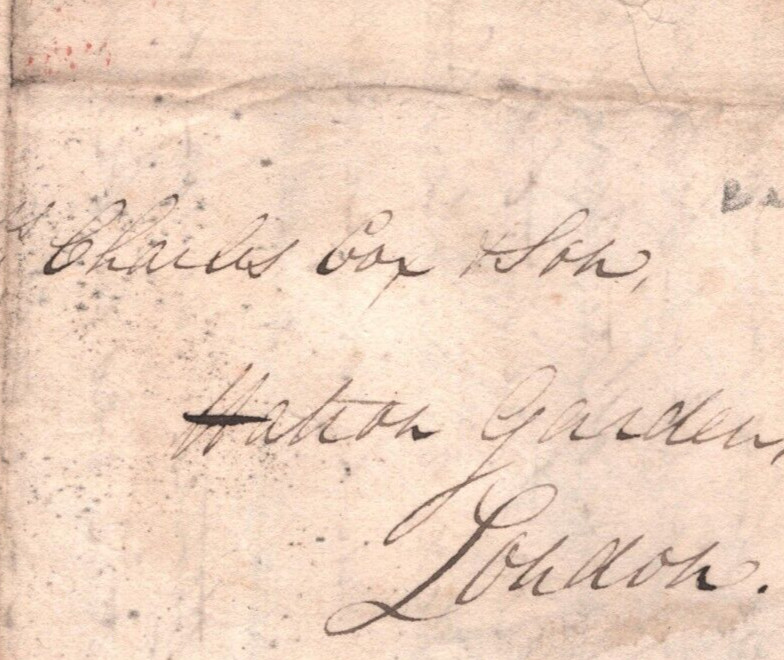 Charles Cox & Son,
Hatton Garden,
London.